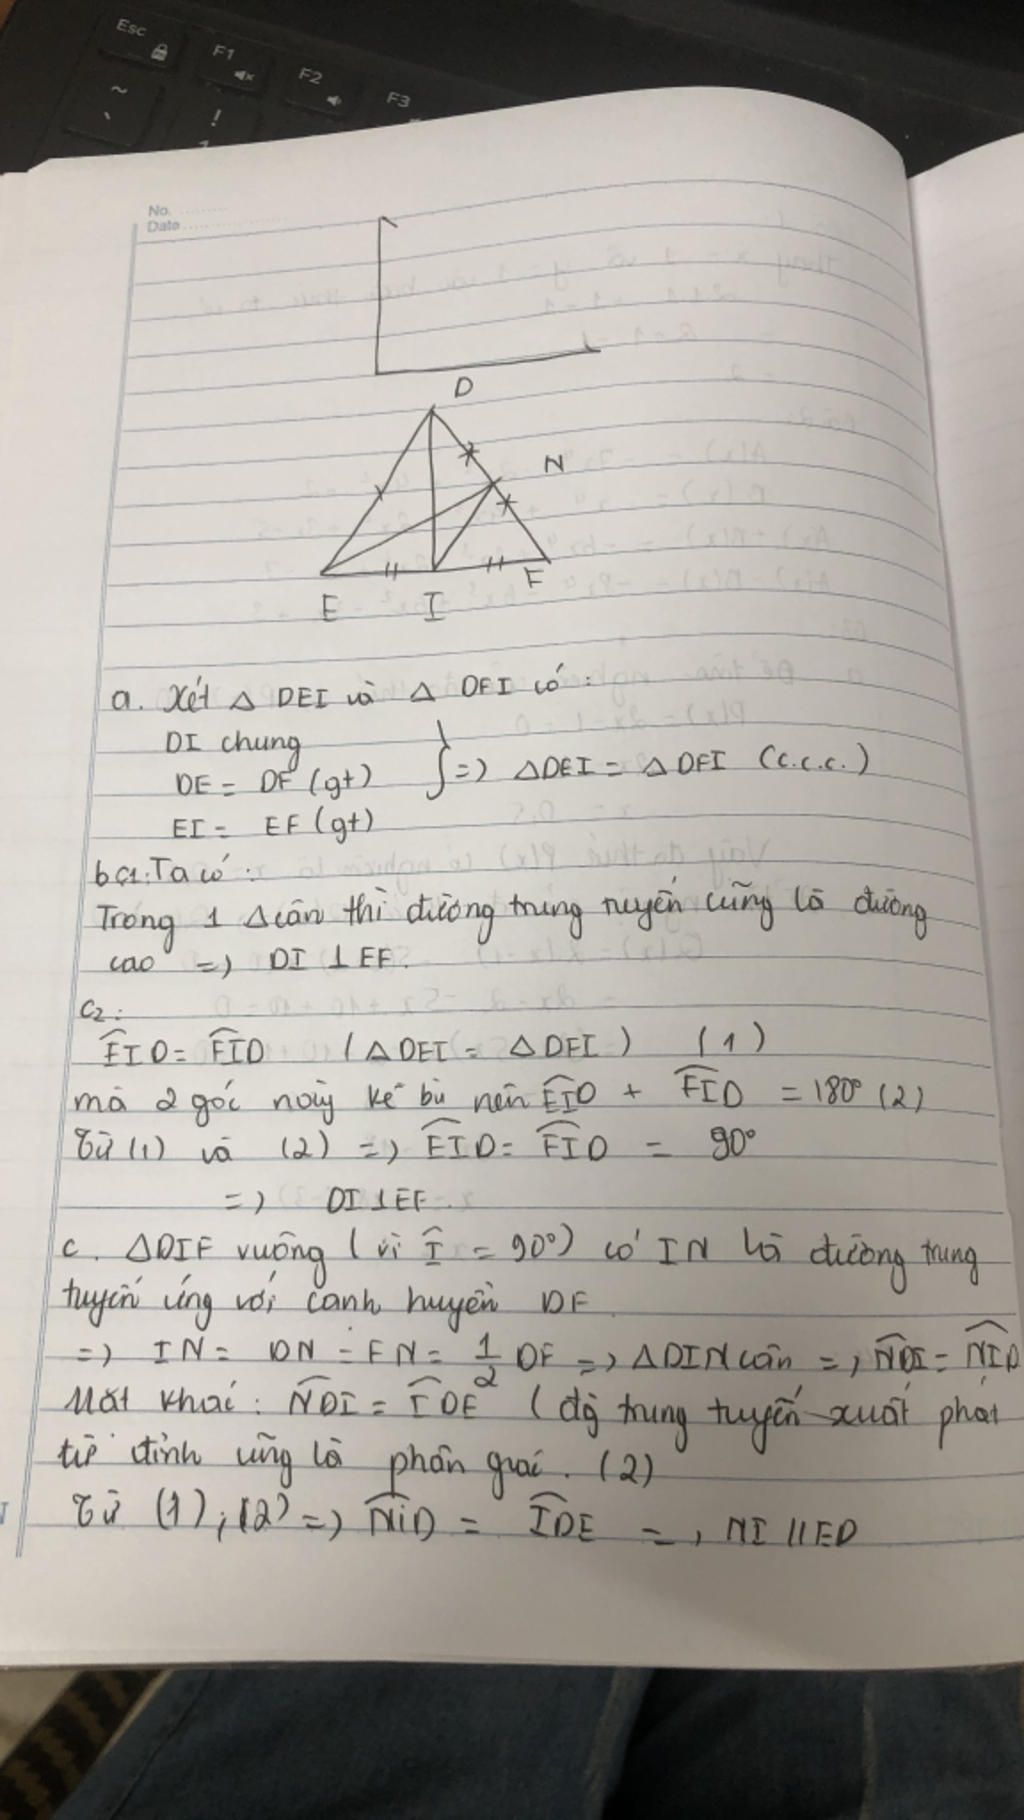 Esc
F1
F2
F3
~
!
No.
Date
D
N
E I F
a. Xét △ DEI và △ DFI có:
DI chung
DE = DF (gt) } => △DEI = △DFI (c.c.c.)
EI = EF (gt)
b c1: Ta có:
Trong 1 △ cân thì đường trung tuyến cũng là đường
cao => DI ⊥ EF.
C2:
\widehat{EID} = \widehat{FID} (△DEI = △DFI) (1)
mà 2 góc này kề bù nên \widehat{EID} + \widehat{FID} = 180° (2)
Từ (1) và (2) => \widehat{EID} = \widehat{FID} = 90°
=> DI ⊥ EF.
c. △DIF vuông (vì \widehat{I} = 90°) có IN là đường trung
tuyến ứng với cạnh huyền DF
=> IN = DN = FN = 1/2 DF => △DIN cân => \widehat{NDI} = \widehat{NID}
Mặt khác: \widehat{NDI} = \widehat{IDE} (đg trung tuyến xuất phát
từ đỉnh cũng là phân giác. (2)
Từ (1), (2) => \widehat{NID} = \widehat{IDE} => NI // ED